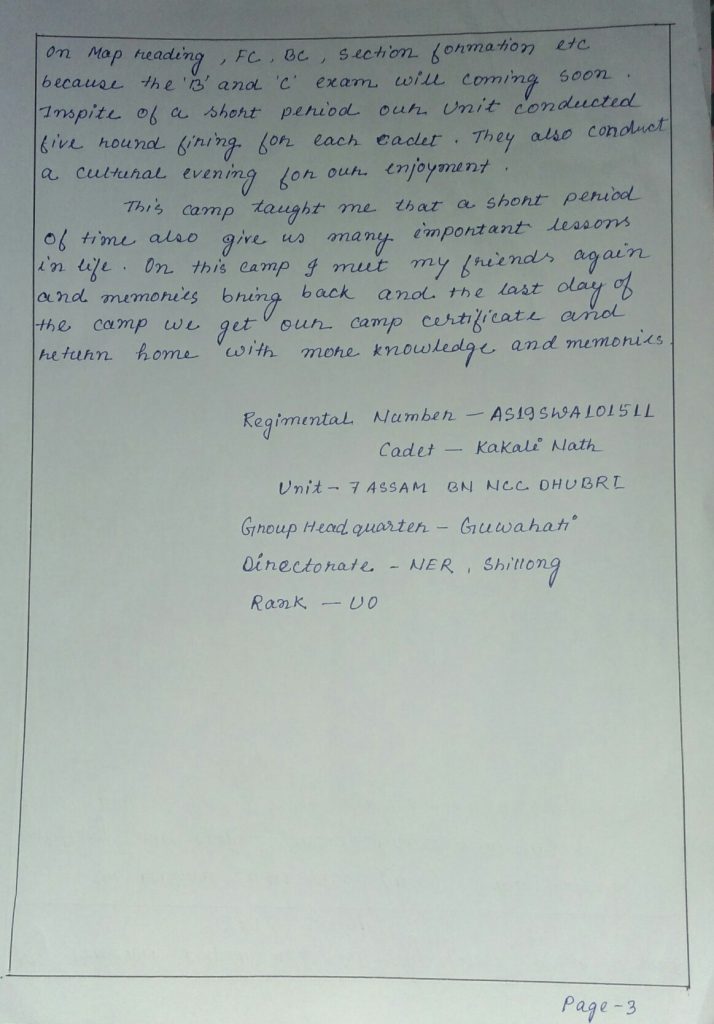 On Map reading, FC, BC, Section formation etc
because the 'B' and 'C' exam will coming soon.
Inspite of a short period our Unit conducted
five round firing for each cadet. They also conduct
a cultural evening for our enjoyment.
This camp taught me that a short period
of time also give us many important lessons
in life. On this camp I meet my friends again
and memories bring back and the last day of
the camp we get our camp certificate and
return home with more knowledge and memories.
Regimental Number - AS19SWA101511
Cadet - Kakali Nath
Unit - 7 ASSAM BN NCC DHUBRI
Group Head quarter - Guwahati
Directorate - NER, Shillong
Rank - UO
Page-3